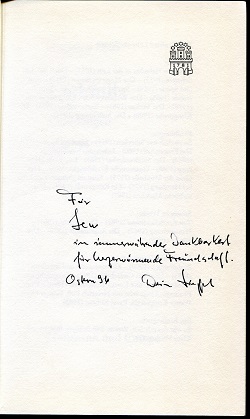 Für
Lew
in immerwährender Dankbarkeit
für herzerwärmende Freundschaft.
Ostern 96 Dein